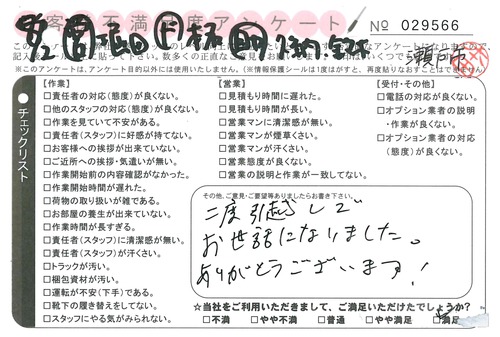 お客様不満足度アンケート
No 029566
瀬戸市
※このアンケートは、アンケート目的以外には使用いたしません。(※情報保護シールは1度はがすと、再度貼りなおすことはできません)
チェックリスト
【作業】
□責任者の対応(態度)が良くない。
□他のスタッフの対応(態度)が良くない。
□作業を見ていて不安がある。
□責任者(スタッフ)に好感が持てない。
□お客様への挨拶が出来ていない。
□ご近所への挨拶・気遣いが無い。
□作業開始前の内容確認がなかった。
□作業開始時間が遅れた。
□荷物の取り扱いが雑である。
□お部屋の養生が出来ていない。
□作業時間が長すぎる。
□責任者(スタッフ)に清潔感が無い。
□責任者(スタッフ)が汗くさい。
□トラックが汚い。
□梱包資材が汚い。
□運転が不安(下手)である。
□靴下の履き替えをしてない。
□スタッフにやる気がみられない。
【営業】
□見積もり時間に遅れた。
□見積もり時間が長い。
□営業マンに清潔感が無い。
□営業マンが煙草くさい。
□営業マンが汗くさい。
□営業態度が良くない。
□営業の説明と作業が一致してない。
【受付・その他】
□電話の対応が良くない。
□オプション業者の説明
・作業が良くない。
□オプション業者の対応
(態度)が良くない。
その他、ご意見・ご要望等ありましたらお書き下さい。
二度引越しで
お世話になりました。
ありがとうございます!
☆当社をご利用いただきまして、ご満足いただけたでしょうか?
□不満 □やや不満 □普通 □やや満足 □満足